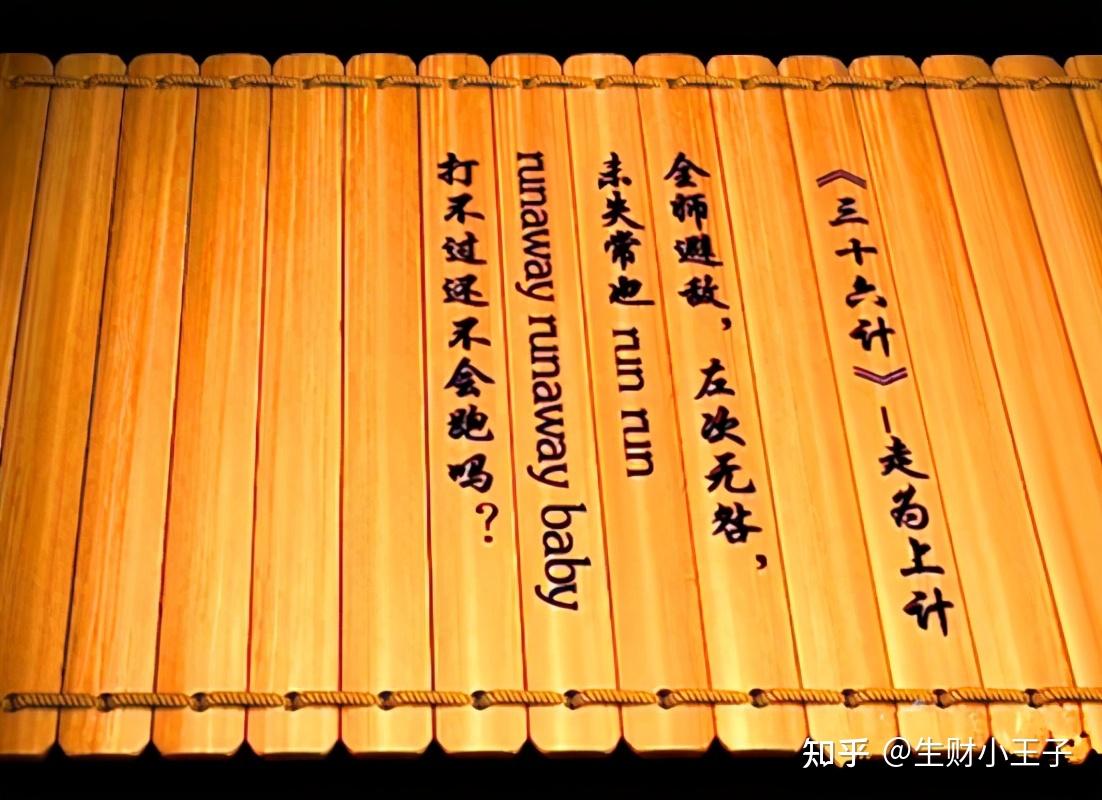 《三十六计》—走为上计
全师避敌，左次无咎，
未失常也 run run
runaway runaway baby
打不过还不会跑吗？
知乎 @生财小王子